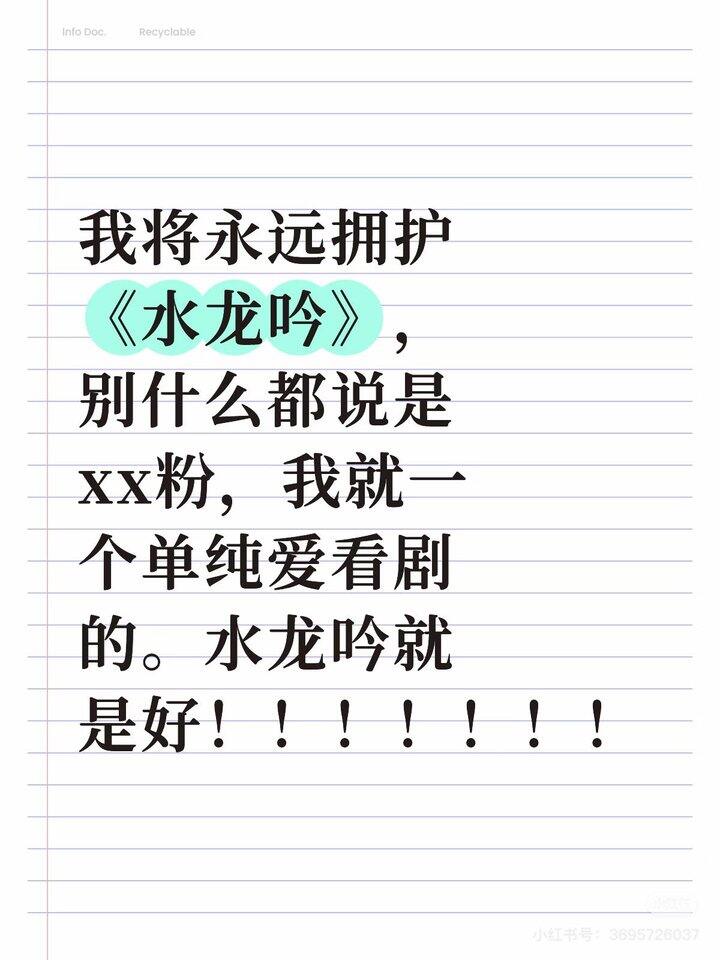 Info Doc. Recyclable
我将永远拥护
《水龙吟》，
别什么都说是
xx粉，我就一
个单纯爱看剧
的。水龙吟就
是好！！！！！！！
小红书
小红书号：3695726037